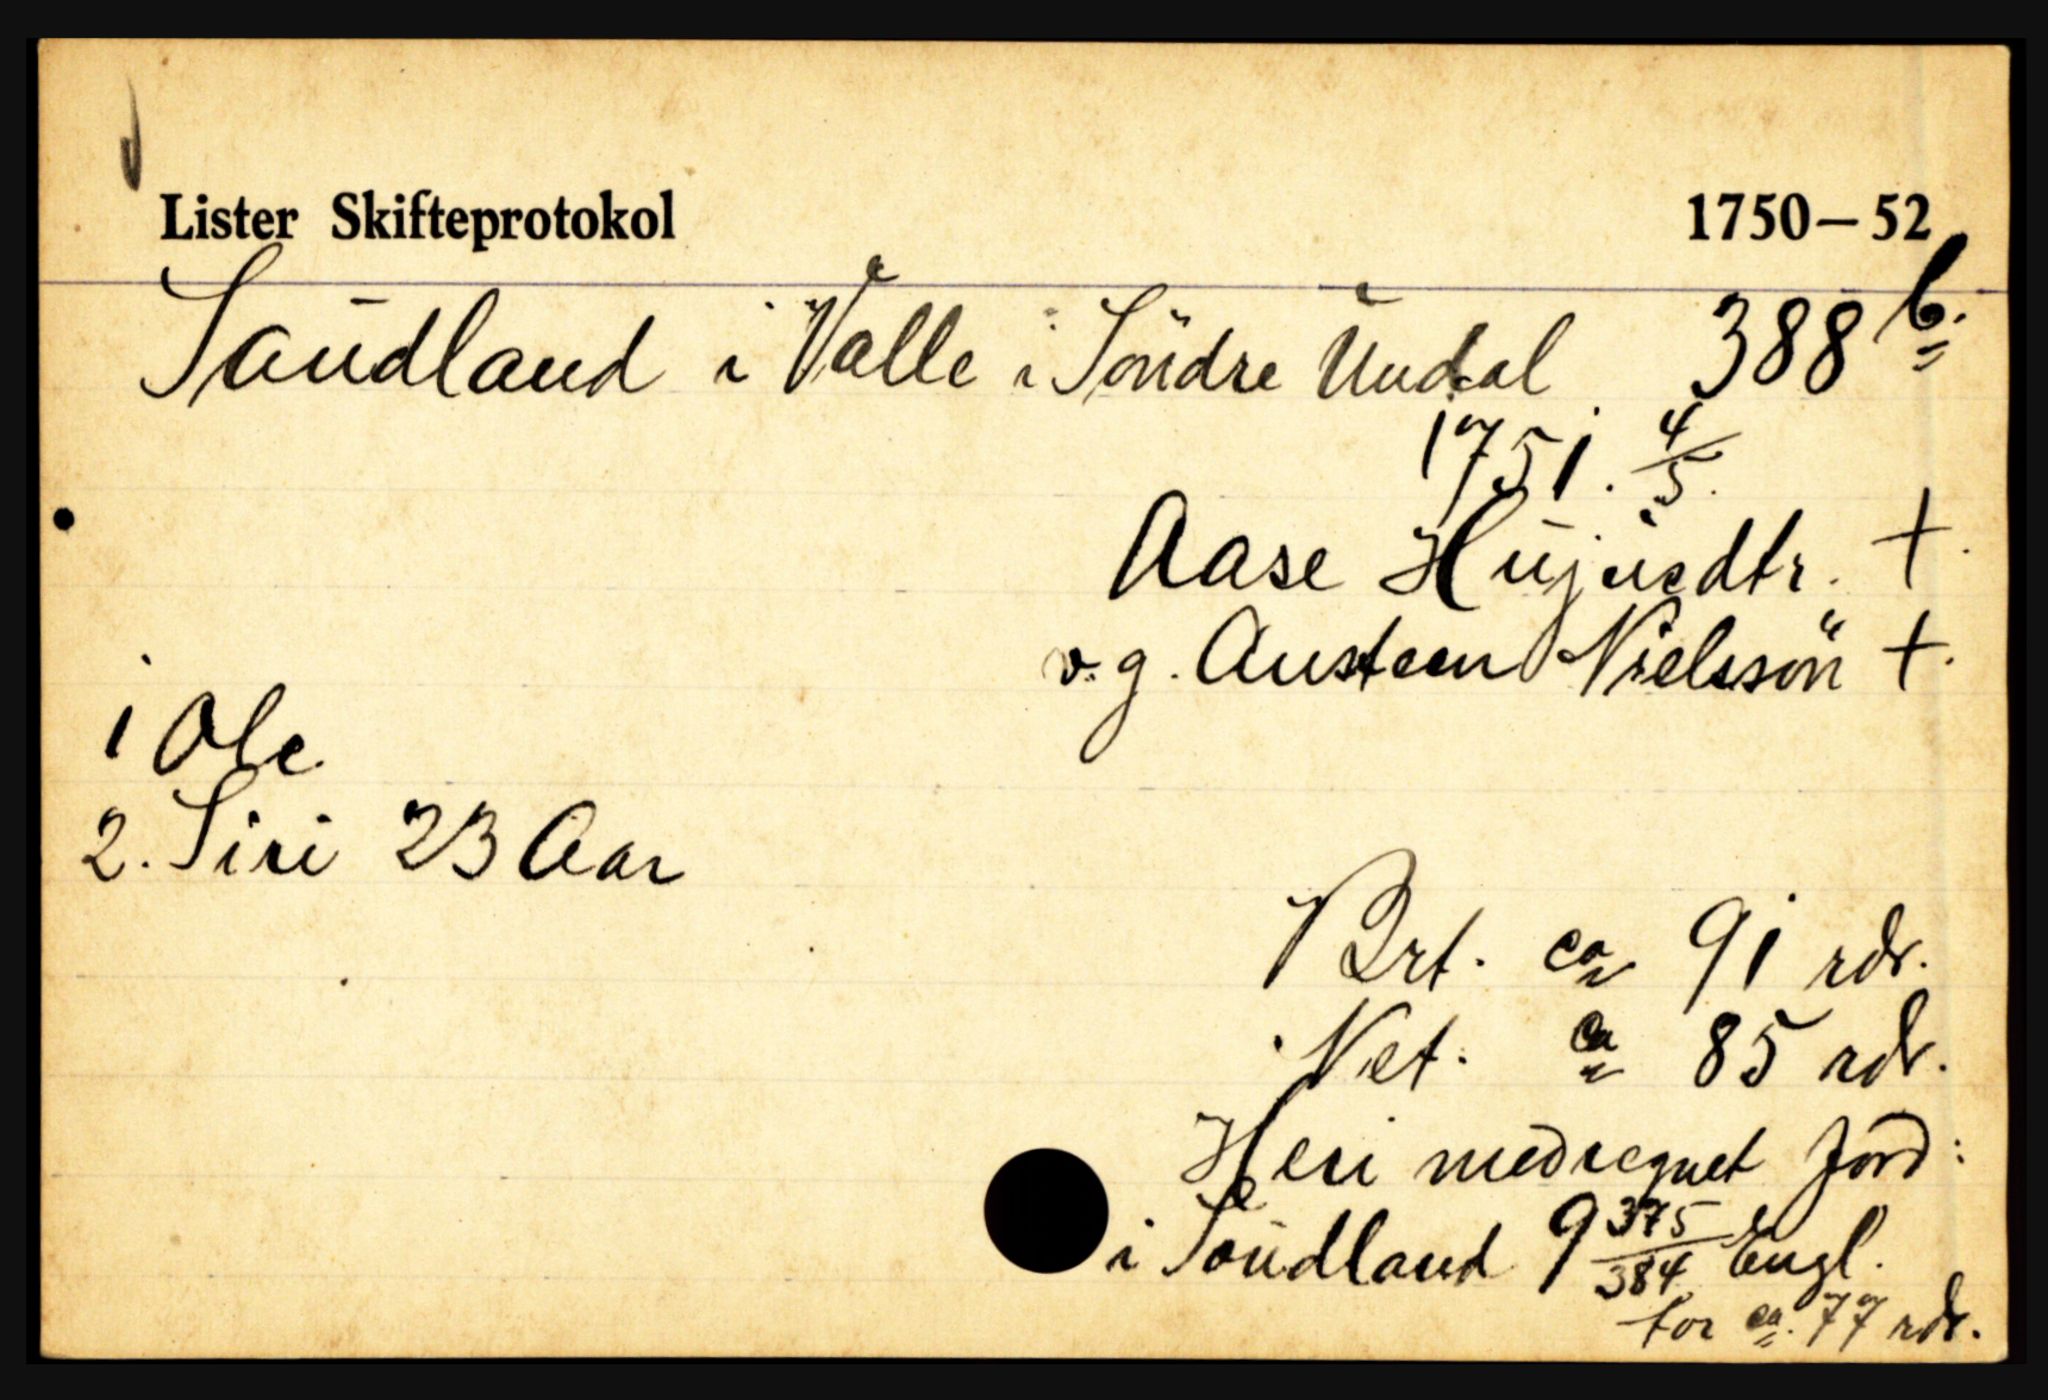 Lister Skifteprotokol 1750–52
Saudland i Valle i Söndre Undal 388 b.
1751. 4/5.
Aase Hujusdtr. +.
v. g. Austeen Nielssön +.
1 Ole.
2. Siri 23 Aar
Brt. ca 91 rdr.
Net. ca 85 rdr.
Heri medregnet Jord:
i Saudland 9 375/384 Engl.
for ca. 77 rdr.